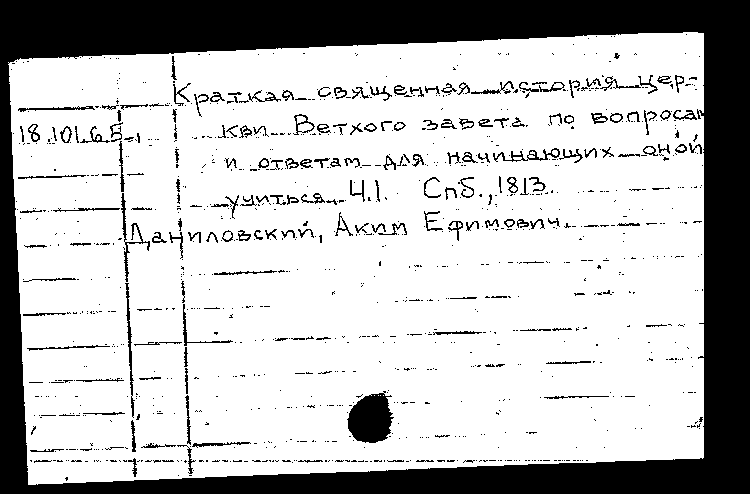 Краткая священная история цер-
18.101.6.5., кви Ветхого завета по вопросам
и ответам для начинающих оной
учиться. Ч.1. Спб., 1813.
Даниловский, Аким Ефимович.